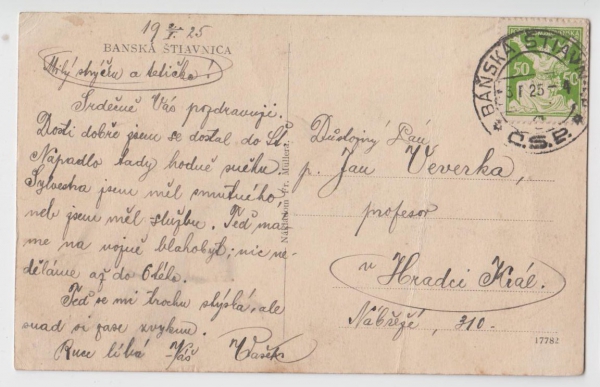 19 2/I 25
BANSKÁ ŠTIAVNICA
Milý strýčku a tetičko!
Srdečně Vás pozdravuji.
Dosti dobře jsem se dostal do Št.
Napadlo tady hodně sněhu.
Sylvestra jsem měl smutného
neb jsem měl službu. Teď má
me na vojně blahobyt, nic ne-
děláme až do 6tého.
Teď se mi trochu stýská, ale
snad si zase zvyknu.
Ruce líbá Váš Vašek
Nákladem Fr. Müllera.
BANSKÁ ŠTIAVN
I 25-4
Č.S.P.
50 50
Důstojný Pán
p. Jan Veverka,
profesor
v Hradci Král.
Nábřeží, 310.
17782